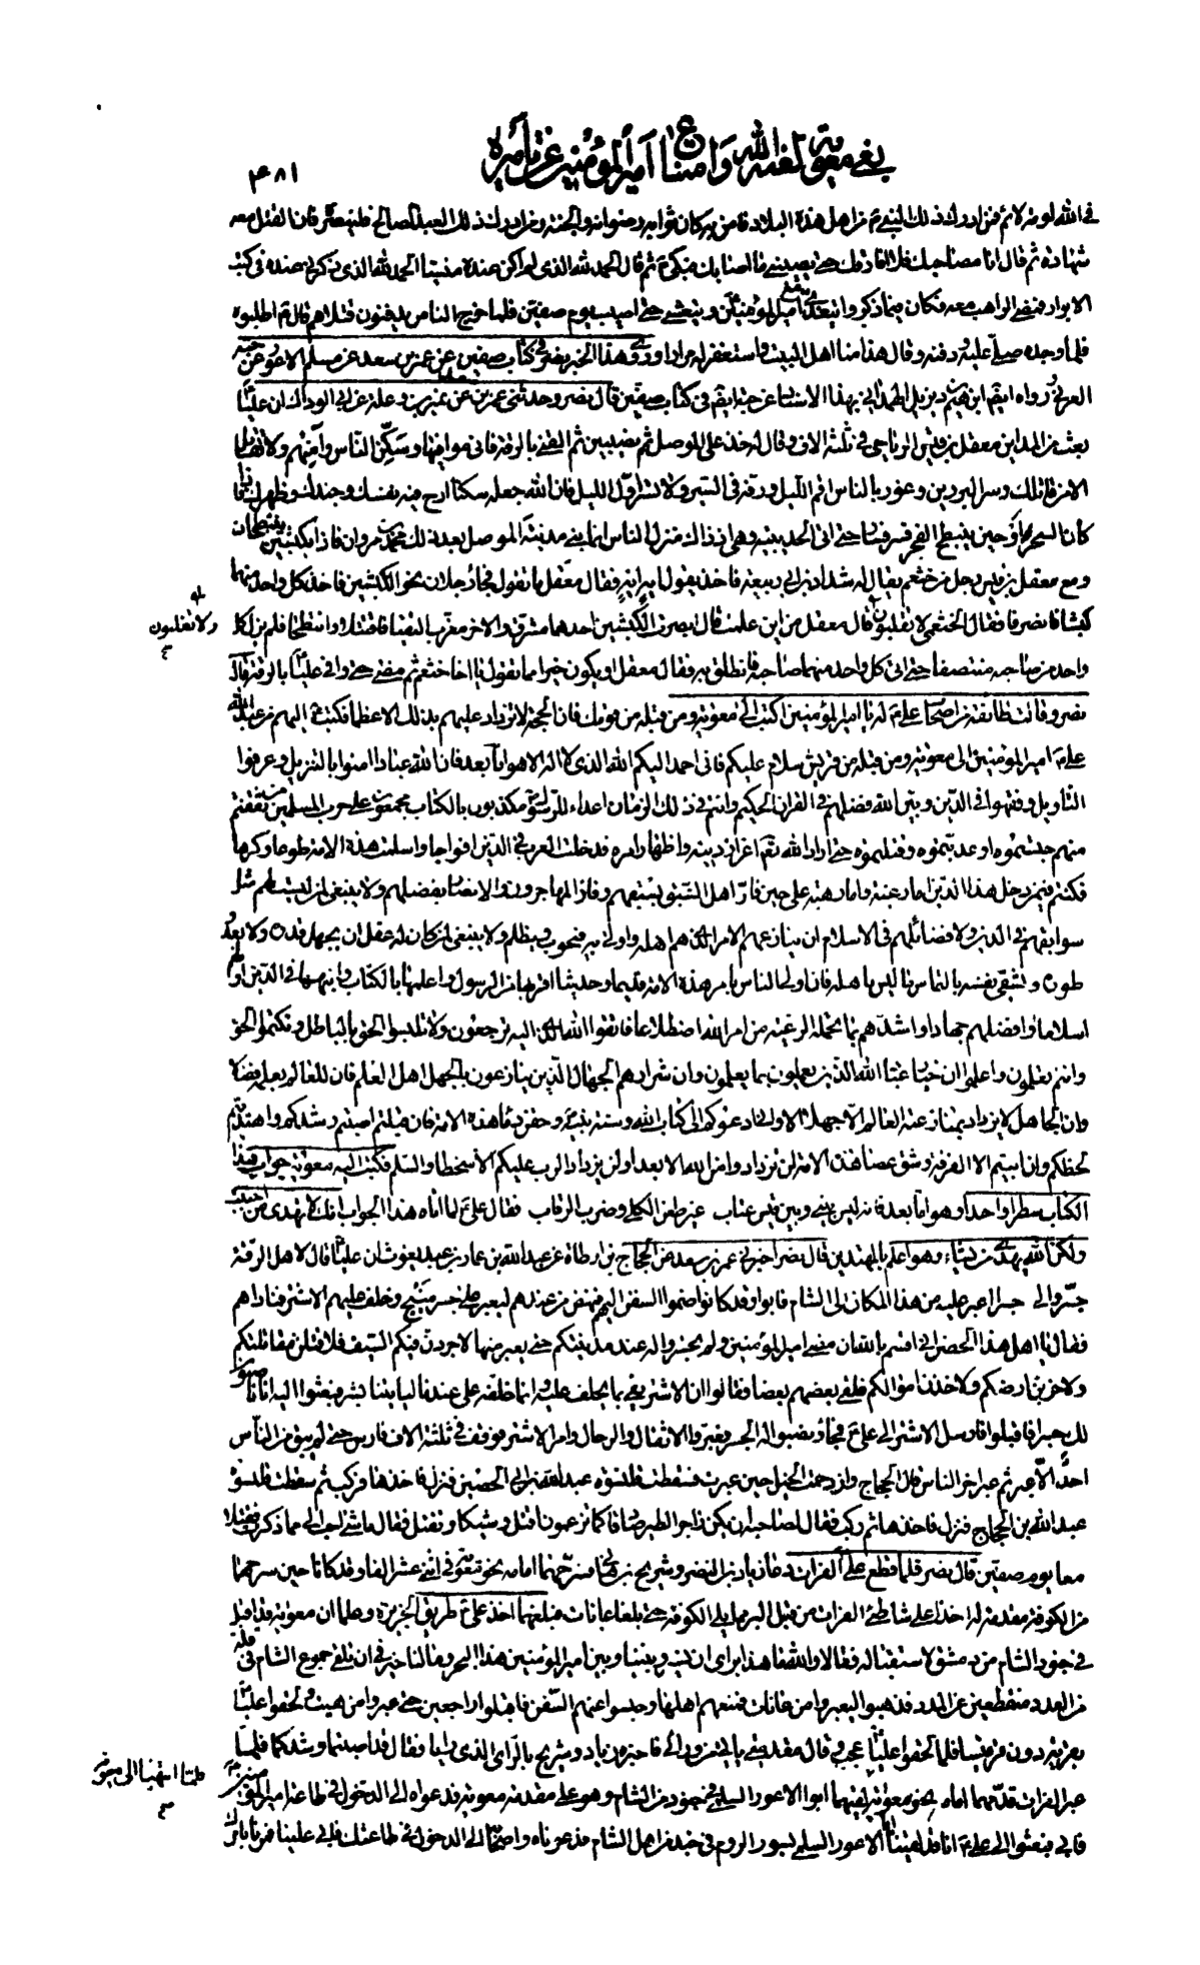 بغي معوية لعنه الله وامتناع أمير المؤمنين عن تأميره
٤٨١
في الله لومة لائم فمن ادرك ذلك النبي من اهل هذه البلاد فامن به كان ثوابه رضوانه والجنة ومن ادرك ذلك العبد الصالح فلينصره فان القتل معه
شهادة ثم قال انا مصاحبك فلا افارقك حتى يصيبني ما اصابك فبكى ثم قال الحمد لله الذي لم اكن عنده منسيا الحمد لله الذي ذكرني عنده في كتب
الابرار فمضى الراهب معه فكان فيما ذكروا يتغدى مع امير المؤمنين ويتعشى حتى اصيب يوم صفين فلما خرج الناس يدفنون قتلاهم قال اطلبوه
فلما وجده صلى عليه ودفنه وقال هذا منا اهل البيت واستغفر له مرارا وروى هذا الخبر نصر في كتاب صفين عن عمر بن سعد عن مسلم الاعور عن حبة
العرني ورواه ايضا ابن ديزيل الهمداني بهذا الاسناد عن حبة ايضا في كتاب صفين قال نصر وحدثني عمر عن نمير بن وعلة عن ابي الوداك ان عليا
بعث من المداين معقل بن قيس الرياحي في ثلثة الاف وقال له خذ على الموصل ثم نصيبين ثم القني بالرقة فاني موافيها وسكن الناس وآمنهم ولا تقاتل
الا من قاتلك وسر البردين وغور بالناس اقم الليل ورفه في السير ولا تسر اول الليل فان الله جعله سكنا ارح فيه نفسك وجندك وظهرك فاذا
كان السحر او حين ينبطح الفجر فسر فسار حتى اتى الحديثة وهي اذ ذاك منزل الناس انما بنى مدينة الموصل بعد ذلك محمد بن مروان فاذا بكبشين ينتطحان
ومع معقل بن قيس رجل من خثعم يقال له شداد بن ابي ربيعة فاخذ يقول ايه ايه فقال معقل ما تقول فجاء رجلان نحو الكبشين فاخذ كل واحد منهما
كبشا فانصرفا فقال الخثعمي لا تغلبون قال معقل من اين علمت قال ابصرت الكبشين احدهما مشرق والاخر مغرب التقيا فاقتتلا وانتطحا فلم يزل كل
ولا تغلبون
واحد من صاحبه منتصفا حتى اتى كل واحد منهما صاحبه فانطلق به فقال معقل او يكون خيرا مما تقول يا اخا خثعم ثم مضى حتى وافى عليا بالرقة قال
نصر وقالت طائفة من اصحاب علي له يا امير المؤمنين اكتب الى معوية ومن قبله من قومك فان الحجة لا تزداد عليهم بذلك الا عظما فكتب اليهم من عبد الله
علي امير المؤمنين الى معوية ومن قبله من قريش سلام عليكم فاني احمد اليكم الله الذي لا اله الا هو اما بعد فان لله عبادا امنوا بالتنزيل وعرفوا
التأويل وفقهوا في الدين وبين الله فضلهم في القران الحكيم وانتم في ذلك الزمان اعداء للرسول مكذبون بالكتاب مجمعون على حرب المسلمين من ثقفتم
منهم حبستموه او عذبتموه وقتلتموه حتى اراد الله تعالى اعزاز دينه واظهار امره فدخلت العرب في الدين افواجا واسلمت هذه الامة طوعا وكرها
فكنتم فيمن دخل هذا الدين اما رغبة واما رهبة على حين فاز اهل السبق بسبقهم وفاز المهاجرون والانصار بفضلهم ولا ينبغي لمن ليست لهم مثل
سوابقهم في الدين ولا فضائلهم في الاسلام ان ينازعهم الامر الذي هم اهله واولى به فيحوب ويظلم ولا ينبغي لمن كان له عقل ان يجهل قدره ولا يعدو
طوره ويشقي نفسه بالتماس ما ليس باهله فان اولى الناس بامر هذه الامة قديما وحديثا اقربها من الرسول واعلمها بالكتاب وافقهها في الدين اولهم
اسلاما وافضلهم جهادا واشدهم بما تحمله الرعية من امر الله اضطلاعا فاتقوا الله الذي اليه ترجعون ولا تلبسوا الحق بالباطل وتكتموا الحق
وانتم تعلمون واعلموا ان خيار عباد الله الذين يعملون بما يعلمون وان شرارهم الجهال الذين ينازعون بالجهل اهل العلم فان للعالم بعلمه فضلا
وان الجاهل لا يزداد بمنازعة العالم الا جهلا الا واني ادعوكم الى كتاب الله وسنة نبيه وحقن دماء هذه الامة فان قبلتم اصبتم رشدكم واهتديتم
لحظكم وان ابيتم الا الفرقة وشق عصا هذه الامة لن تزداد وامن الله الا بعدا ولن يزداد الرب عليكم الا سخطا والسلم فكتب اليه معوية جواب هذا
الكتاب سطرا واحدا وهو اما بعد فانه ليس بيني وبين قيس عتاب غير طعن الكلى وضرب الرقاب فقال علي لما اتاه هذا الجواب انك لا تهدي من احببت
ولكن الله يهدي من يشاء وهو اعلم بالمهتدين قال نصر اخبرني عمر بن سعد عن الحجاج بن ارطاة عن عبد الله بن عمار بن عبد يغوث ان عليا قال لاهل الرقة
جسروا لي جسرا اعبر عليه من هذا المكان الى الشام فابوا وقد كانوا ضموا السفن اليهم فنهض من عندهم ليعبر على جسر منبج وخلف عليهم الاشتر فناداهم
فقال يا اهل هذا الحصن اني اقسم بالله ان مضى امير المؤمنين ولم تجسروا له عند مدينتكم حتى يعبر منها لاجردن فيكم السيف فلاقتلن مقاتلتكم
ولاخربن ارضكم ولاخذن اموالكم فلقي بعضهم بعضا فقالوا ان الاشتر يفي بما يحلف عليه وانما خلفه علي عندنا ليأتينا بشر فبعثوا اليه انا ناصبون
لك جسرا فاقبلوا فارسل الاشتر الى علي فجاء ونصبوا له الجسر فعبر والاثقال والرجال وامر الاشتر فوقف في ثلثة الاف فارس حتى لم يبق من الناس
احد الا عبر ثم عبر اخر الناس قال الحجاج وازدحمت الخيل حين عبرت فسقطت قلنسوة عبد الله بن ابي الحصين فنزل فاخذها وركب ثم سقطت قلنسوة
عبد الله بن الحجاج فنزل فاخذها ثم ركب فقال لصاحبه ان يكن زاجر الطير صادقا كما تزعمون اقتل وشيكا وتقتل فقال ما شيء احب الي مما ذكرت فقتلا
معا يوم صفين قال نصر فلما قطع علي الفرات دعا زياد بن النضر وشريح بن هاني فسرحهما امامه نحو معوية في اثني عشر الفا وقد كانا حين سرحهما
من الكوفة مقدمة له اخذا على شاطئ الفرات من قبل البر مما يلي الكوفة حتى بلغا عانات فبلغهما اخذ علي طريق الجزيرة وعلما ان معوية قد اقبل
في جنود الشام من دمشق لاستقباله فقالا والله ما هذا براي ان نسير وبيننا وبين امير المؤمنين هذا البحر وما لنا خير في ان نلقى جموع الشام في قلة
من العدد منقطعين عن المدد فذهبوا ليعبروا من عانات فمنعهم اهلها وحبسوا عنهم السفن فاقبلوا راجعين حتى عبروا من هيت ولحقوا عليا
بقرية دون قرقيسا فلما لحقوا عليا عجب وقال مقدمتي تاتي من ورائي فاخبره زياد وشريح بالراي الذي رايا فقال قد اصبتما رشدكما فلما
فلما انتهيا الى معوية
عبر الفرات قدمهما امامه نحو معوية لقيهما ابو الاعور السلمي في جنود من الشام وهو على مقدمة معوية فدعواه الى الدخول في طاعة امير المؤمنين
فابى فبعثوا الى علي انا قد لقينا ابا الاعور السلمي بسور الروم في جند من اهل الشام فدعوناه واصحابه الى الدخول في طاعتك فابى علينا فمرنا بامرك